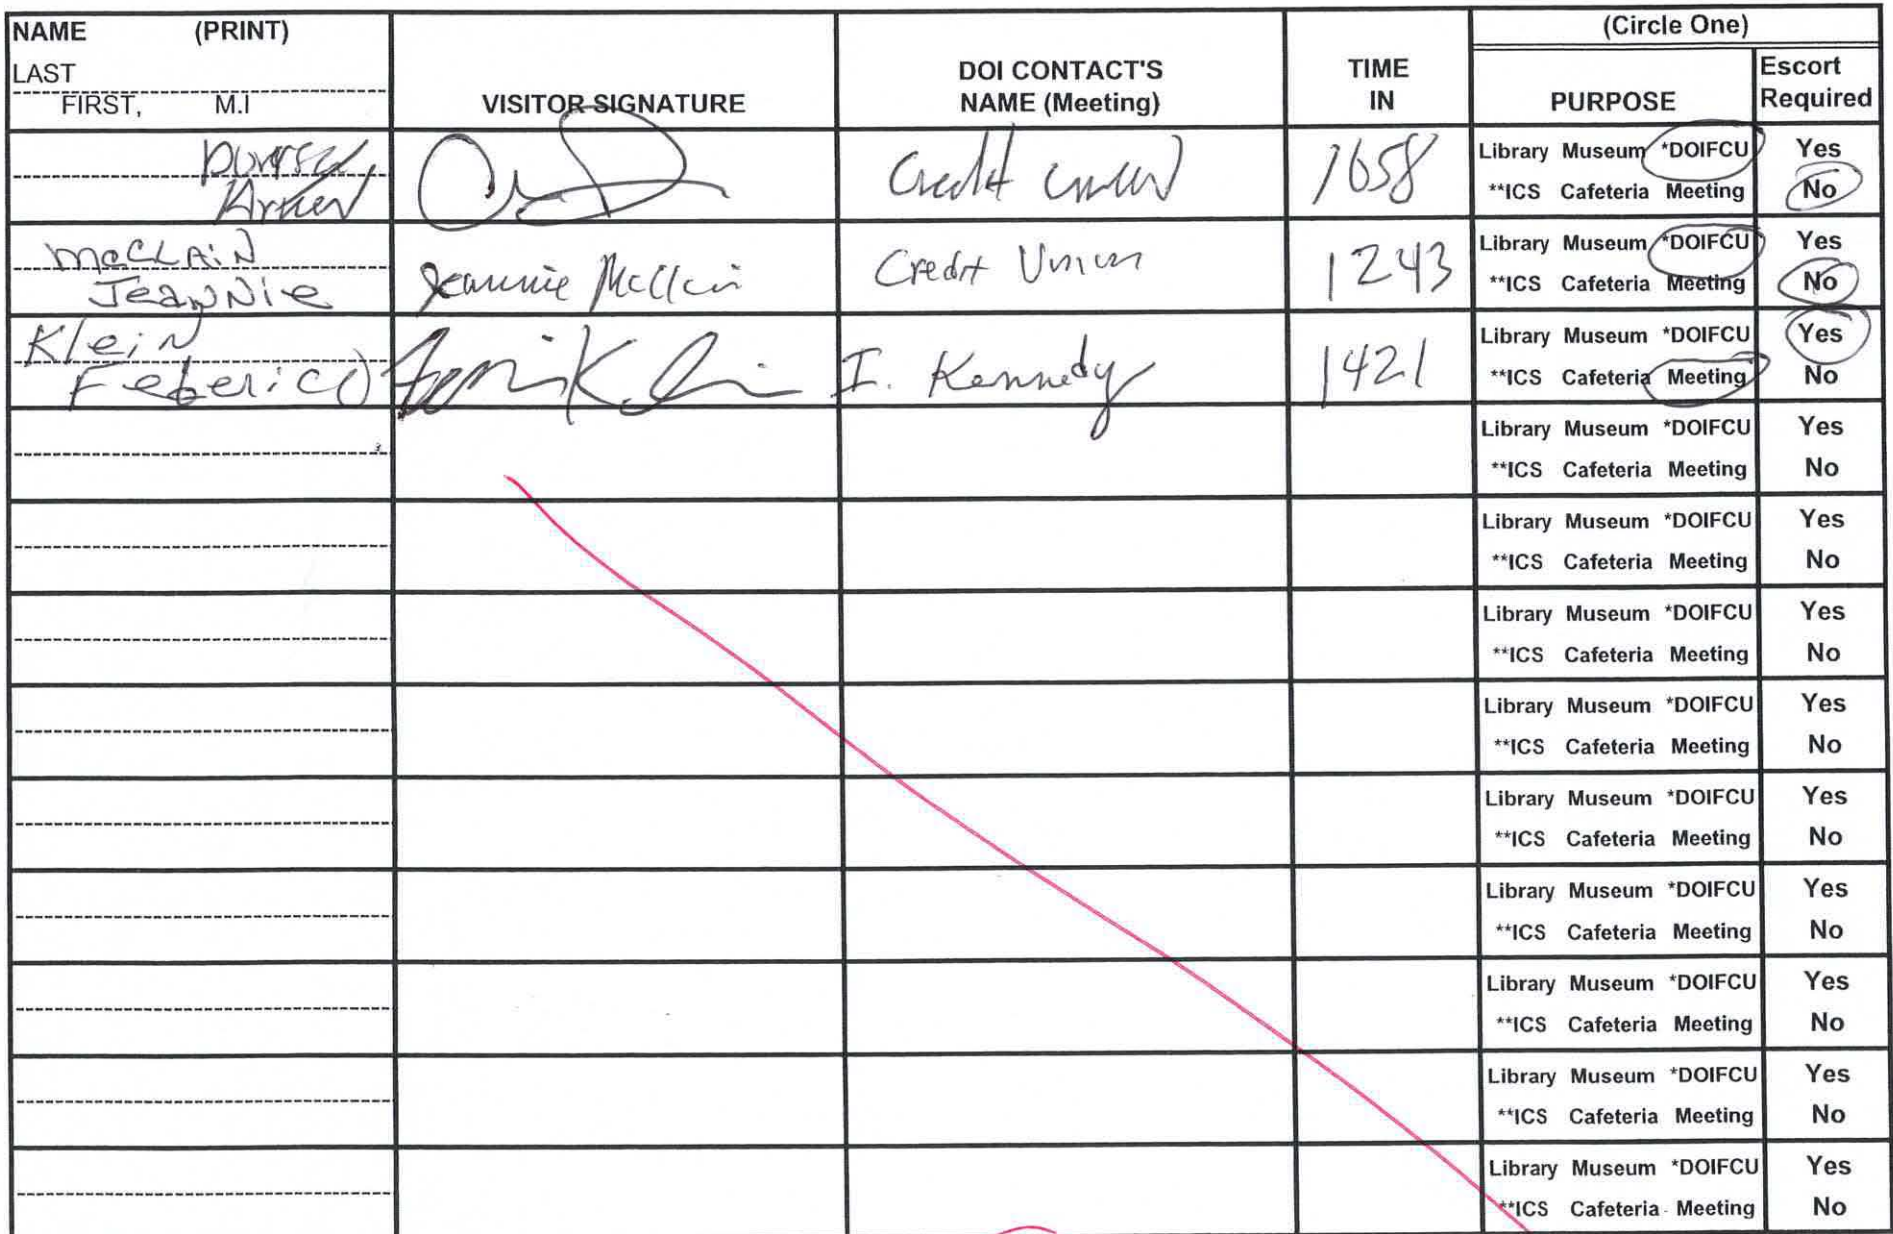 NAME (PRINT)
LAST
FIRST, M.I
VISITOR SIGNATURE
DOI CONTACT'S
NAME (Meeting)
TIME
IN
(Circle One)
PURPOSE
Escort
Required
Credit 1658
Library Museum *DOIFCU Yes
**ICS Cafeteria Meeting No
McCLAiN
JeanNie
Jeannie McClain Credit Union 1243
Library Museum *DOIFCU Yes
**ICS Cafeteria Meeting No
KleiN
Federico
I. Kennedy 1421
Library Museum *DOIFCU Yes
**ICS Cafeteria Meeting No
Library Museum *DOIFCU Yes
**ICS Cafeteria Meeting No
Library Museum *DOIFCU Yes
**ICS Cafeteria Meeting No
Library Museum *DOIFCU Yes
**ICS Cafeteria Meeting No
Library Museum *DOIFCU Yes
**ICS Cafeteria Meeting No
Library Museum *DOIFCU Yes
**ICS Cafeteria Meeting No
Library Museum *DOIFCU Yes
**ICS Cafeteria Meeting No
Library Museum *DOIFCU Yes
**ICS Cafeteria Meeting No
Library Museum *DOIFCU Yes
**ICS Cafeteria Meeting No
Library Museum *DOIFCU Yes
**ICS Cafeteria Meeting No